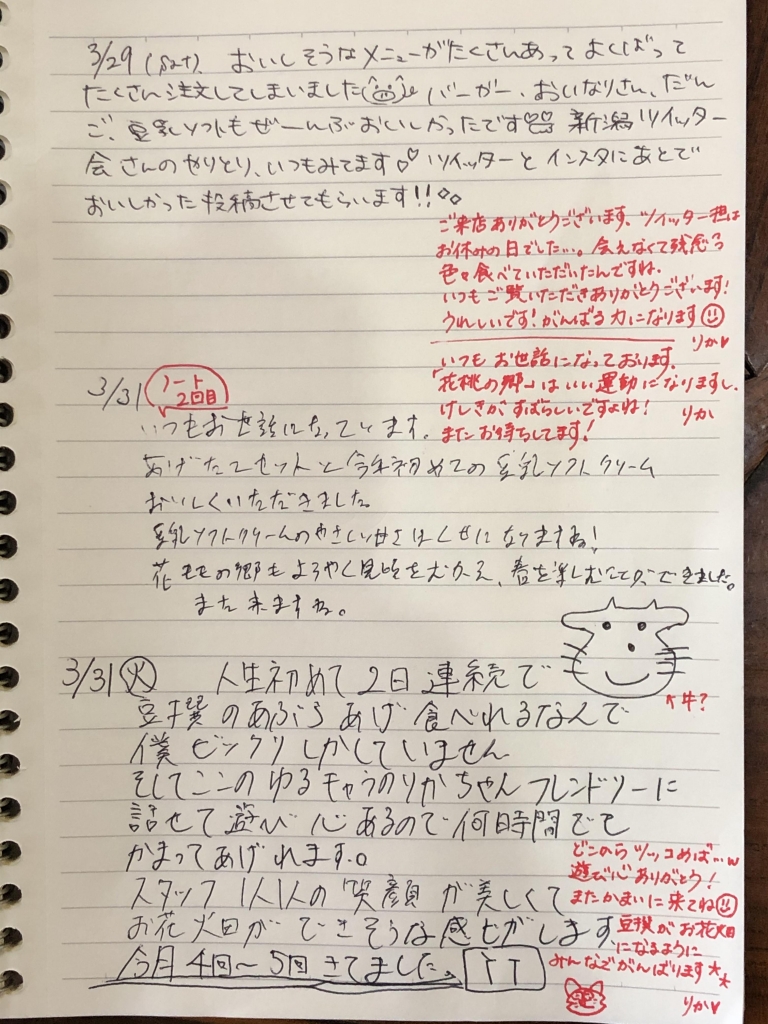 3/29 (Sat). おいしそうなメニューがたくさんあって よくばって
たくさん注文してしまいました バーガー、おいなりさん、だん
ご、豆乳ソフトもぜーんぶおいしかったです 新潟ツイッター
会さんのやりとり、いつもみてます♡ ツイッターとインスタにあとで
おいしかった投稿させてもらいます!!
ご来店ありがとうございます、ツイッター担は
お休みの日でした…。会えなくて残念
色々食べていただいたんですね。
いつもご覧いただきありがとうございます!
うれしいです!がんばる力になります☺
りか♥
いつもお世話になっております。
「花桃の郷」はいい運動になりますし、
けしきがすばらしいですよね!
またお待ちしてます!
りか
3/31
ノート
2回目
いつもお世話になっています。
あげたてセットと今年初めての豆乳ソフトクリーム
おいしくいただきました。
豆乳ソフトクリームのやさしい甘さはくせになりますね!
花モモの郷もようやく見頃をむかえ、春を楽しむことができました。
また来ますね。
↑牛?
3/31 火 人生初めて2日連続で
豆撰のあぶらあげ食べれるなんで
僕ビックリしかしていません
そしてここのゆるキャラのりかちゃんフレンドリーに
話せて遊び心あるので何時間でも
かまってあげれます。
スタッフ1人1人の笑顔が美しくて
お花火田ができそうな感じがします、
今月4回〜5回きてました。 TT
どこからツッコめば…w
遊び心ありがとう!
またかまいに来てね☺
豆撰がお花火田
になるように
みんなでがんばります★★
りか♥